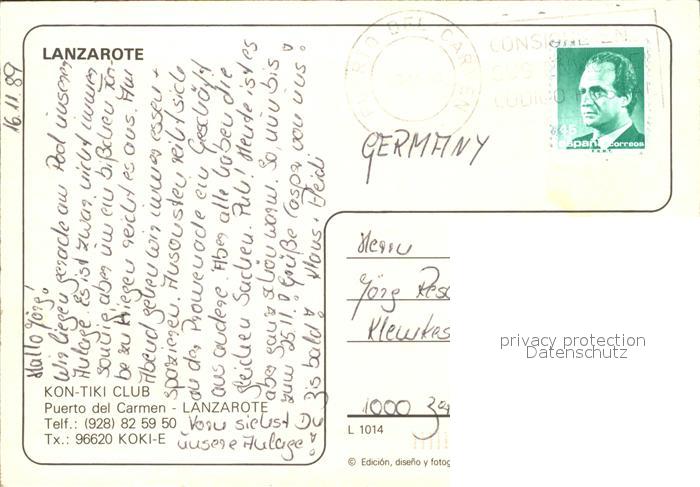 LANZAROTE
16.11.89
Hallo Jörg!
Wir liegen gerade am Pool unserer
Anlage. Es ist zwar nicht immer
sonnig aber um ein bißchen Far-
be zu kriegen reicht es aus. Am
Abend gehen wir immer essen +
spazieren. Ansonsten reiht sich
an der Promenade ein Geschäft
aus andere. Aber alle haben die
gleichen Sachen. Puh! Heute ist es
aber ganz schön warm. So, nun bis
zum 25.11.! Grüße Caspar von uns!
Bis bald! Klaus + Heidi
Vorn siehst Du
unsere Anlage!
KON-TIKI CLUB
Puerto del Carmen - LANZAROTE
Telf.: (928) 82 59 50
Tx.: 96620 KOKI-E
PUERTO DEL CARMEN
CONSIGNE EN
CODIGO
45
españa correos
F.N.M.T.
GERMANY
Herrn
Jörg
1000
privacy protection
Datenschutz
L 1014
© Edición, diseño y fotog